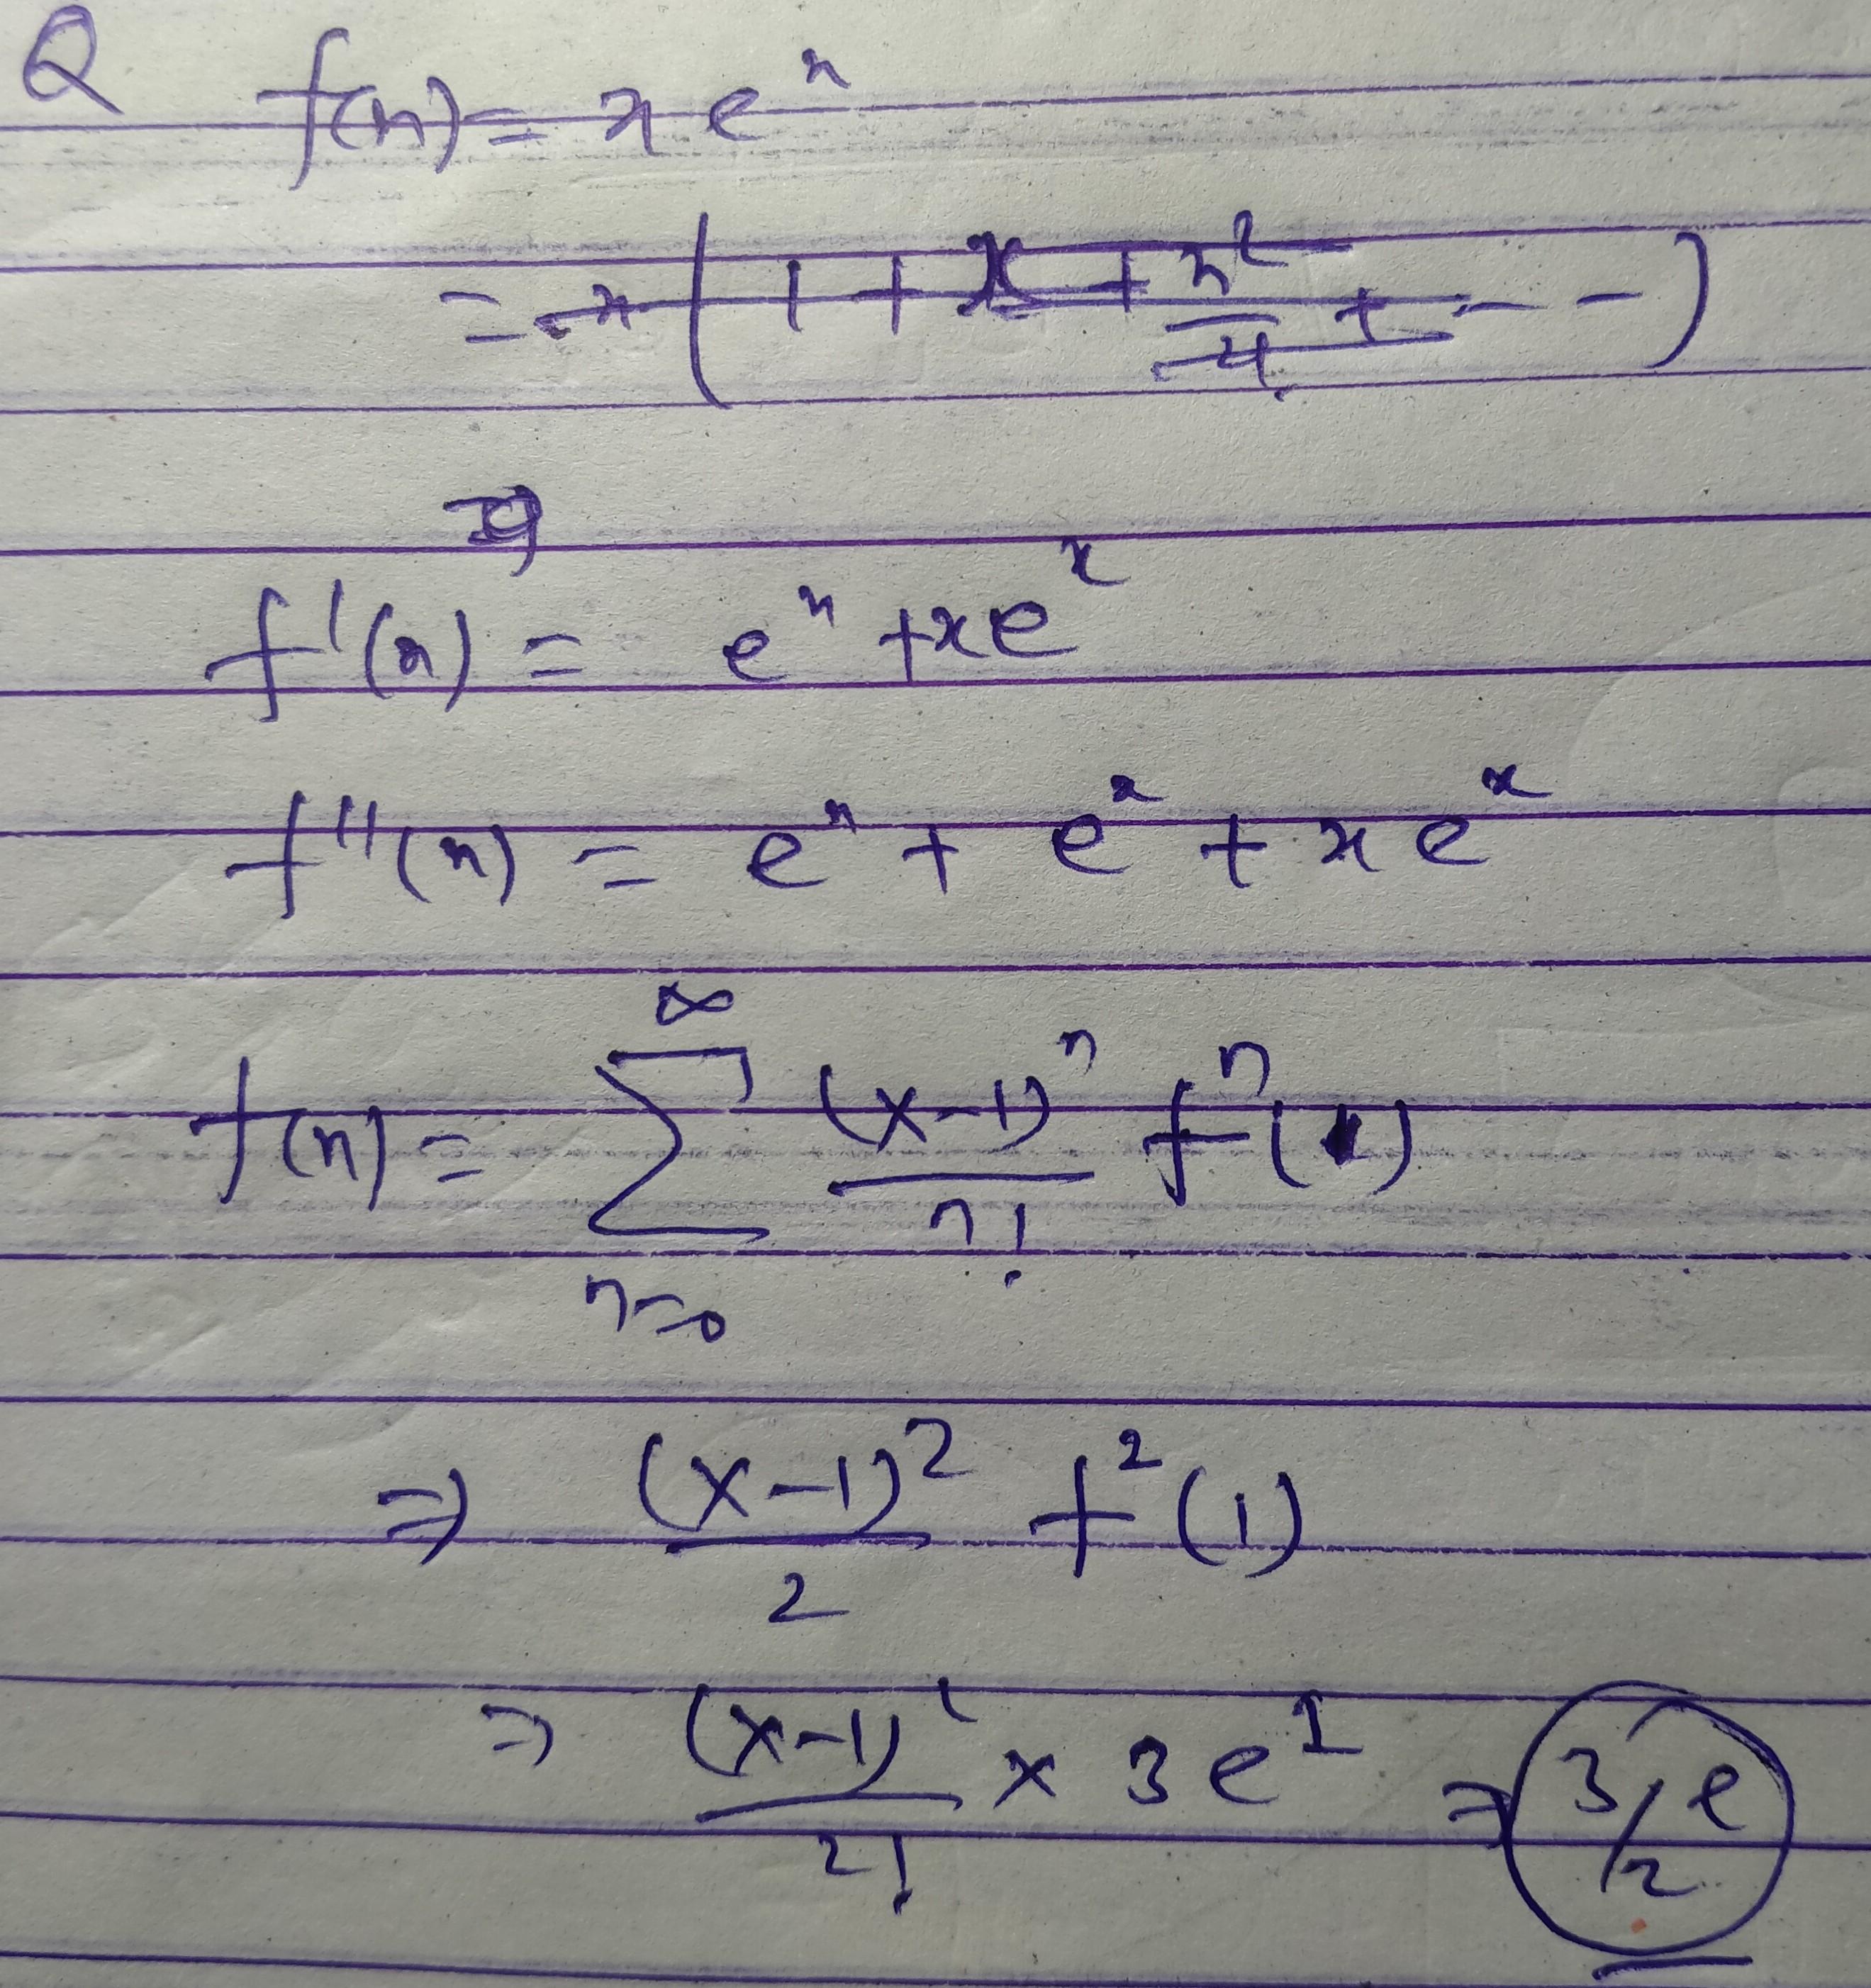 Q f(x) = x e^x
= x ( 1 + x + x^2/4 + - - - )
f'(x) = e^x + x e^x
f''(x) = e^x + e^x + x e^x
f(x) = ∑_{n=0}^{∞} (x-1)^n / n! f^n(1)
⇒ (x-1)^2 / 2 f^2(1)
⇒ (x-1)^2 / 2! × 3 e^1 ⇒ 3/2 e